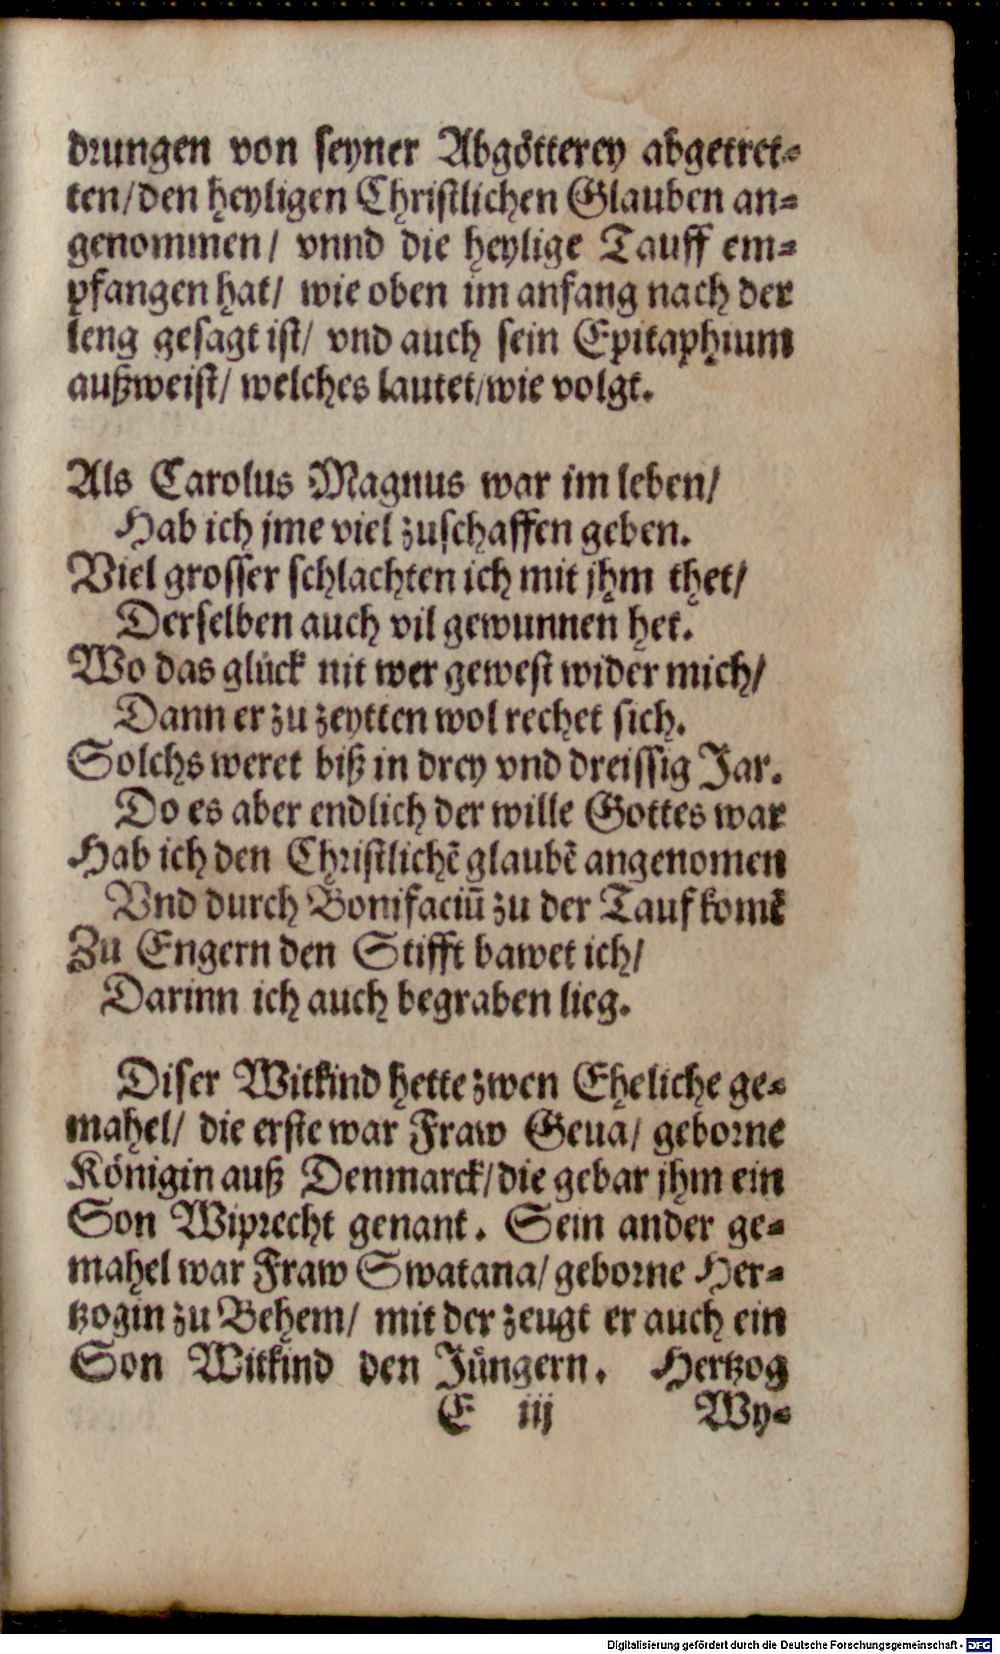 drungen von seyner Abgötterey abgetret-
ten/ den heyligen Christlichen Glauben an-
genommen/ vnnd die heylige Tauff em-
pfangen hat/ wie oben im anfang nach der
leng gesagt ist/ vnd auch sein Epitaphium
außweist/ welches lautet/ wie volgt.
Als Carolus Magnus war im leben/
Hab ich jme viel zuschaffen geben.
Viel grosser schlachten ich mit jhm thet/
Derselben auch vil gewunnen het.
Wo das glück nit wer gewest wider mich/
Dann er zu zeytten wol rechet sich.
Solchs weret biß in drey vnd dreissig Jar.
Do es aber endlich der wille Gottes war
Hab ich den Christlichē glaubē angenomen
Vnd durch Bonifaciū zu der Tauf komē
Zu Engern den Stifft bawet ich/
Darinn ich auch begraben lieg.
Diser Witkind hette zwen Eheliche ge-
mahel/ die erste war Fraw Geua/ geborne
Königin auß Denmarck/ die gebar jhm ein
Son Wiprecht genant. Sein ander ge-
mahel war Fraw Swatana/ geborne Her-
tzogin zu Behem/ mit der zeugt er auch ein
Son Witkind den Jüngern. Hertzog
E iij Wy-
Digitalisierung gefördert durch die Deutsche Forschungsgemeinschaft - DFG